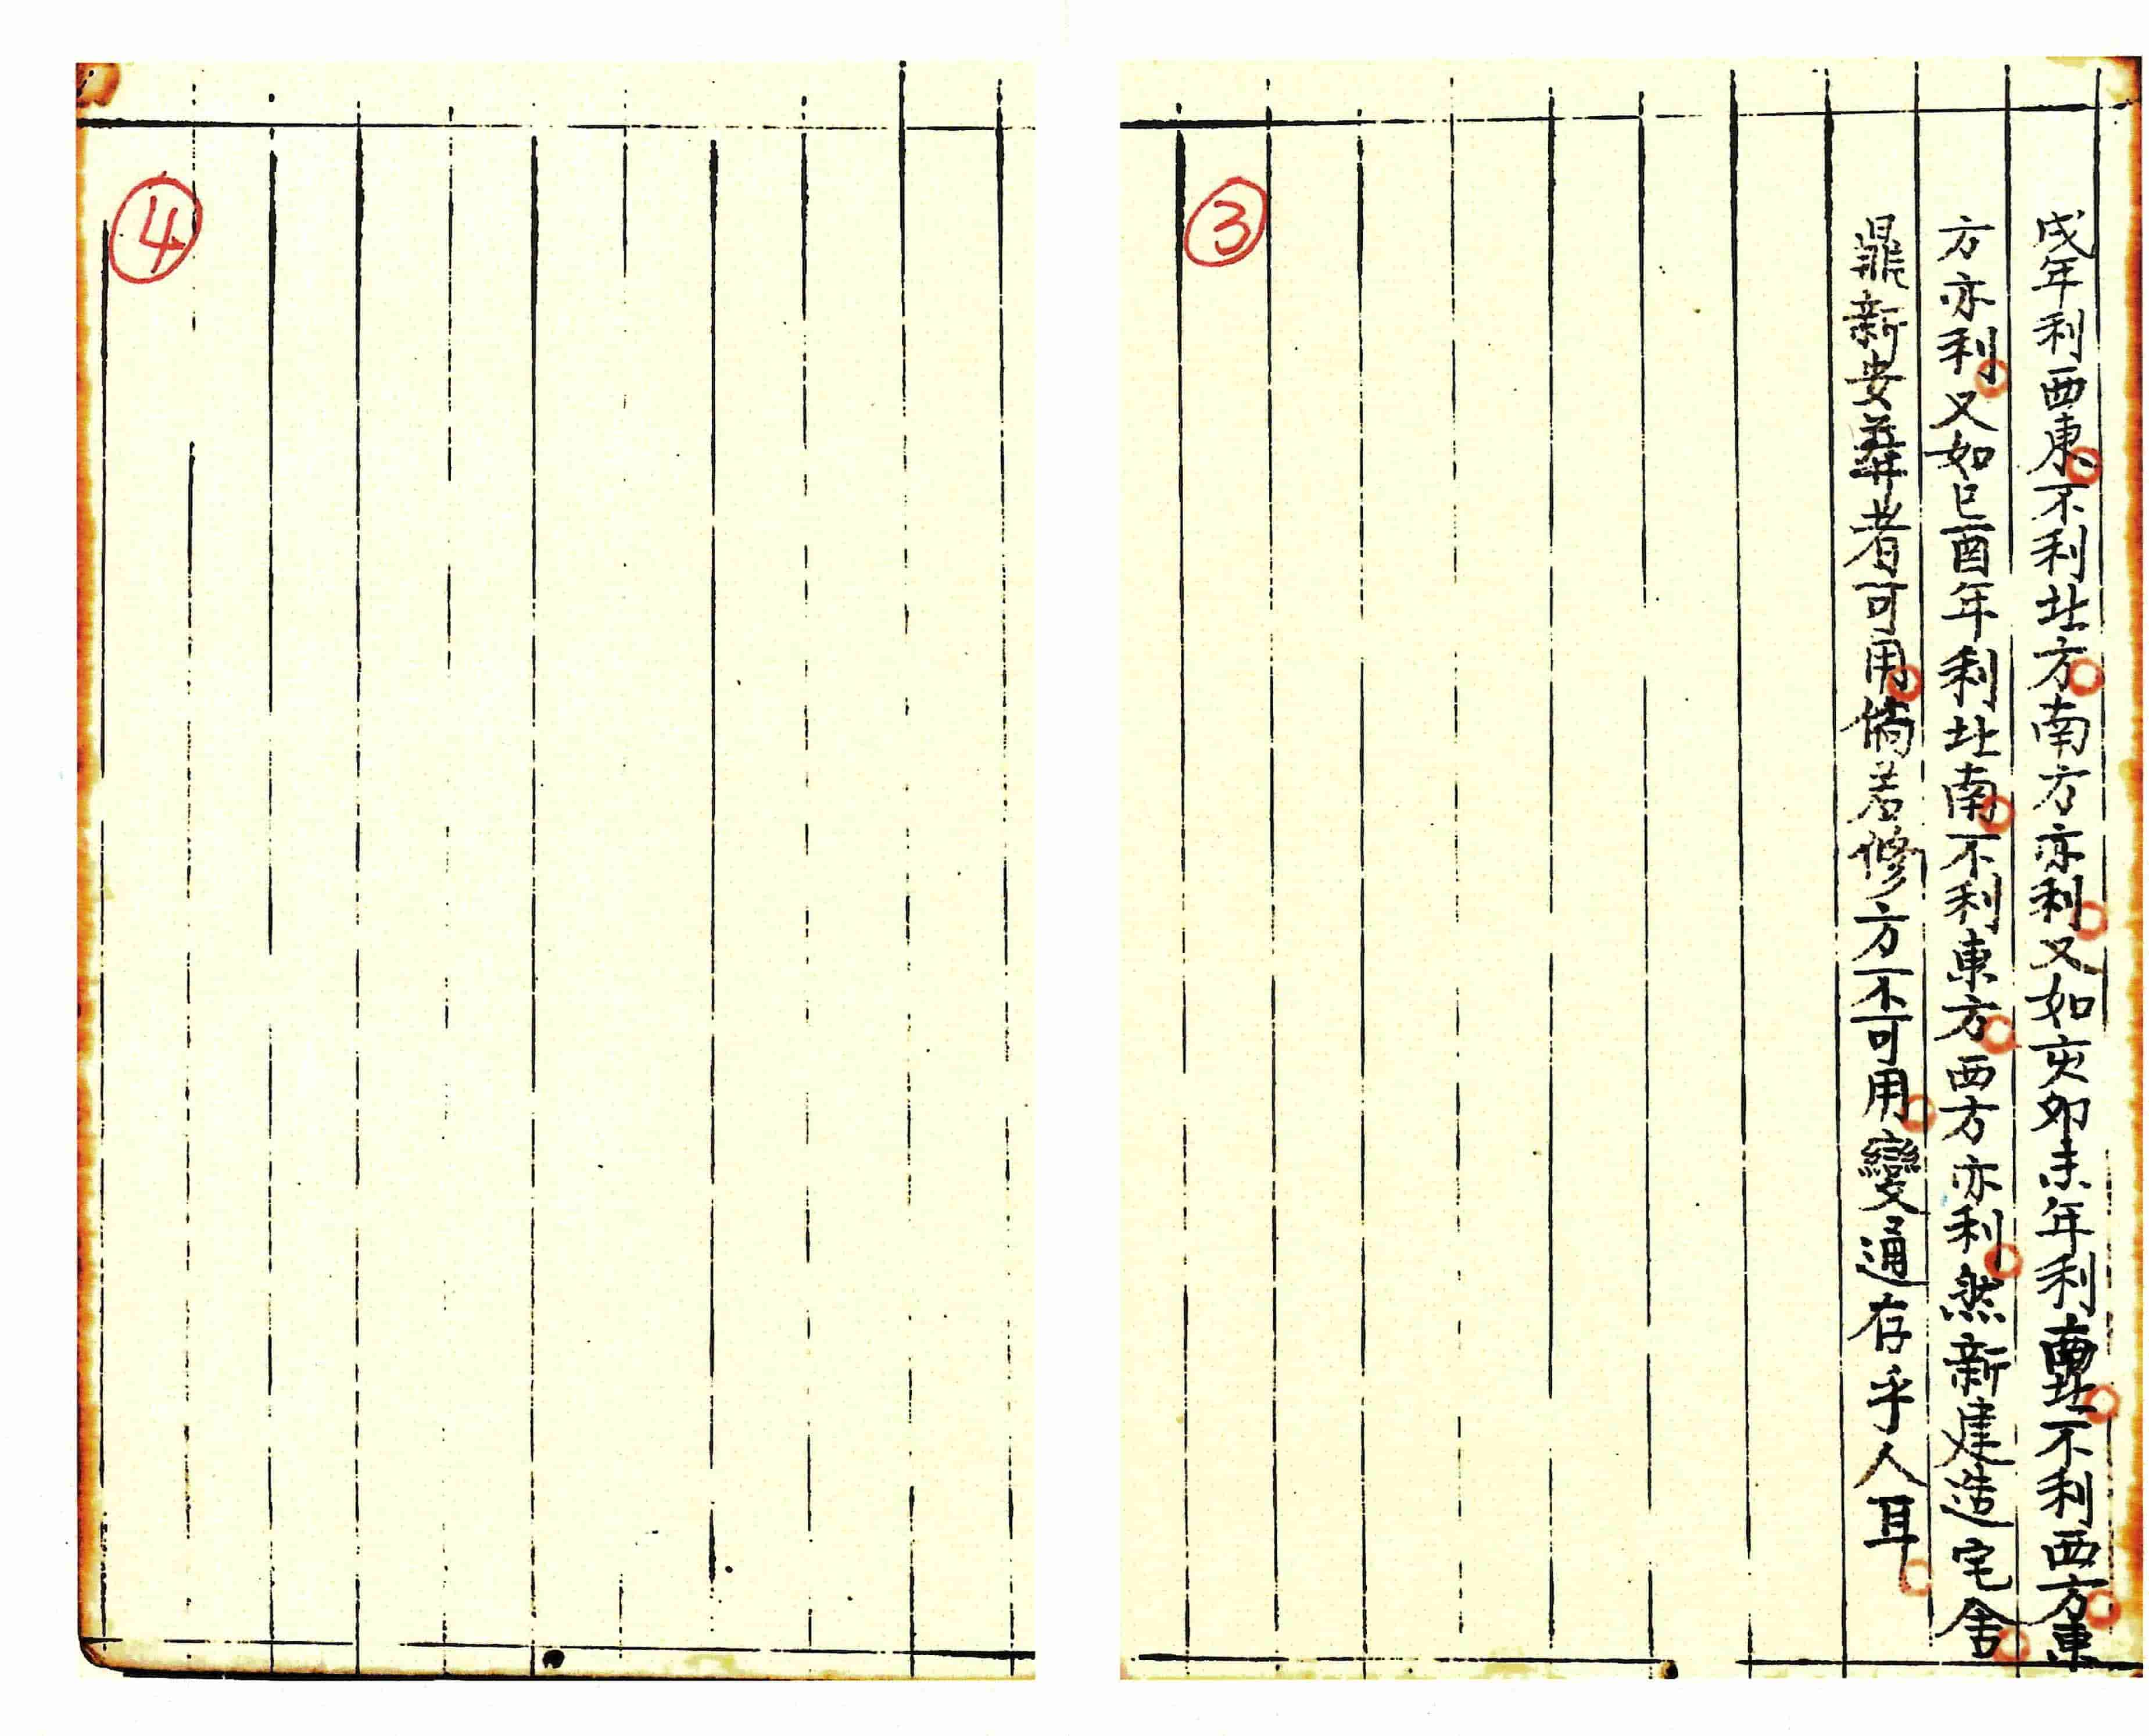 ③
戌年利西東不利北方南方亦利又如亥卯未年利南北不利西方東
方亦利又如巳酉年利北南不利東方西方亦利然新建造宅舍
鼎新安葬者可用倘若修方不可用變通存乎人耳
④